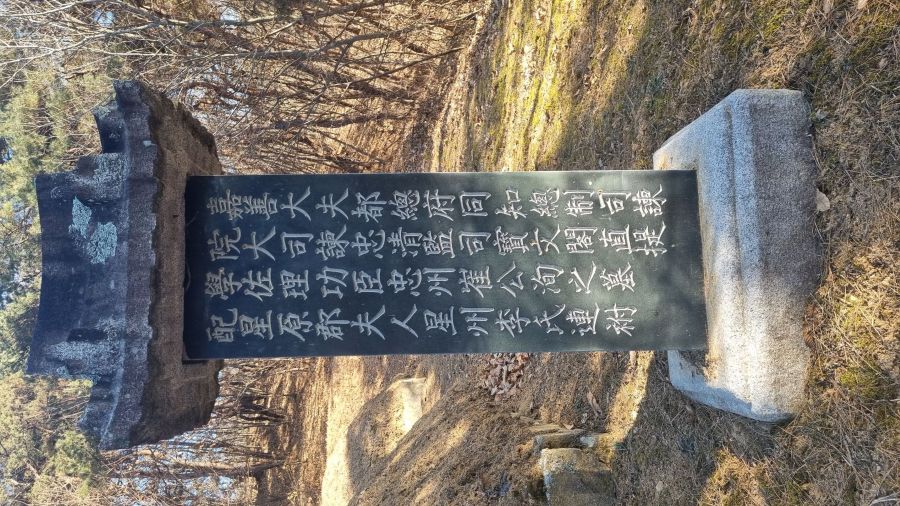 嘉善大夫都總府同知總制司諫
院大司諫忠清監司寶文閣直提
學佐理功臣忠州崔公洵之墓
配星原郡夫人星州李氏連祔